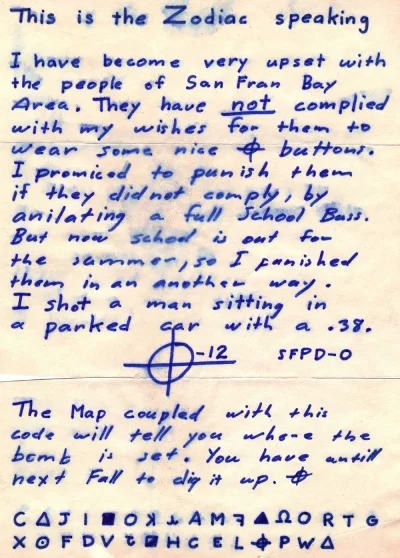 This is the Zodiac speaking
I have become very upset with
the people of San Fran Bay
Area. They have not complied
with my wishes for them to
wear some nice ⌖ buttons.
I promiced to punish them
if they did not comply, by
anilating a full School Buss.
But now school is out for
the summer, so I punished
them in an another way.
I shot a man sitting in
a parked car with a .38.
⌖-12 SFPD-0
The Map coupled with this
code will tell you where the
bomb is set. You have antill
next Fall to dig it up. ⌖
C Δ J I ■ O ꓘ ⅄ A M ꟻ ▲ Ω O R T G
X ⊙ F D V ⱹ ■ H C E L ⌖ P W Δ